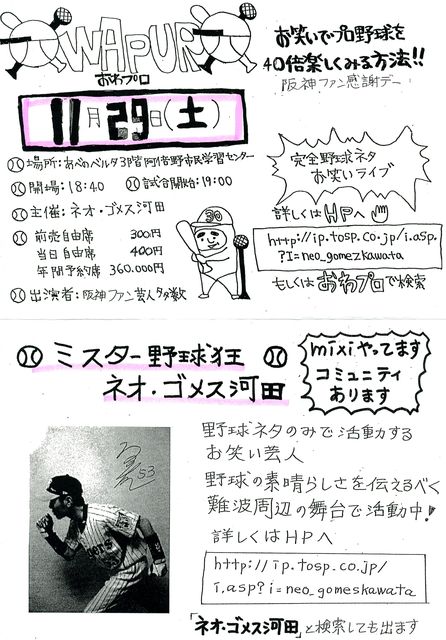 WAPUR
おわプロ
お笑いでプロ野球を
40倍楽しくみる方法!!
阪神ファン感謝デー
11月29日(土)
場所:あべのベルタ3階 阿倍野市民学習センター
開場:18:40 試合開始:19:00
主催:ネオ・ゴメス河田
前売自由席 300円
当日自由席 400円
年間予約席 360.000円
出演者:阪神ファン芸人多数
完全野球ネタ
お笑いライブ
詳しくはHPへ
http://ip.tosp.co.jp/i.asp.
?I=neo_gomezkawata
もしくはおわプロで検索
ミスター野球狂
ネオ・ゴメス河田
mixiやってます
コミュニティ
あります
野球ネタのみで活動する
お笑い芸人
野球の素晴らしさを伝えるべく
難波周辺の舞台で活動中!
詳しくはHPへ
http://ip.tosp.co.jp/
i.asp?i=neo_gomeskawata
「ネオ・ゴメス河田」と検索しても出ます
53